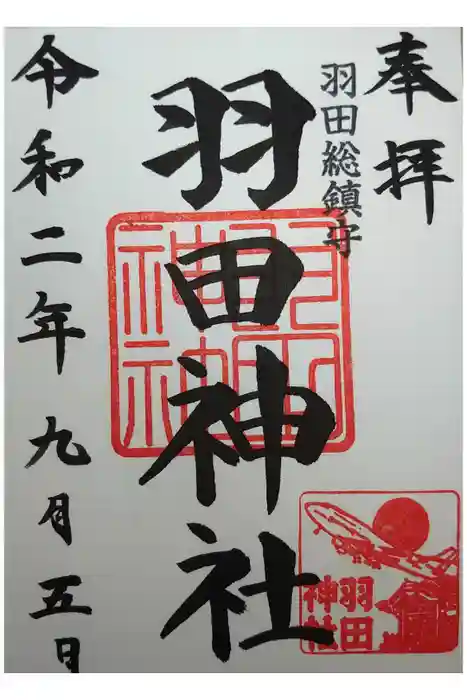 奉拝
羽田総鎮守
羽田神社
令和二年九月五日
羽田
神社